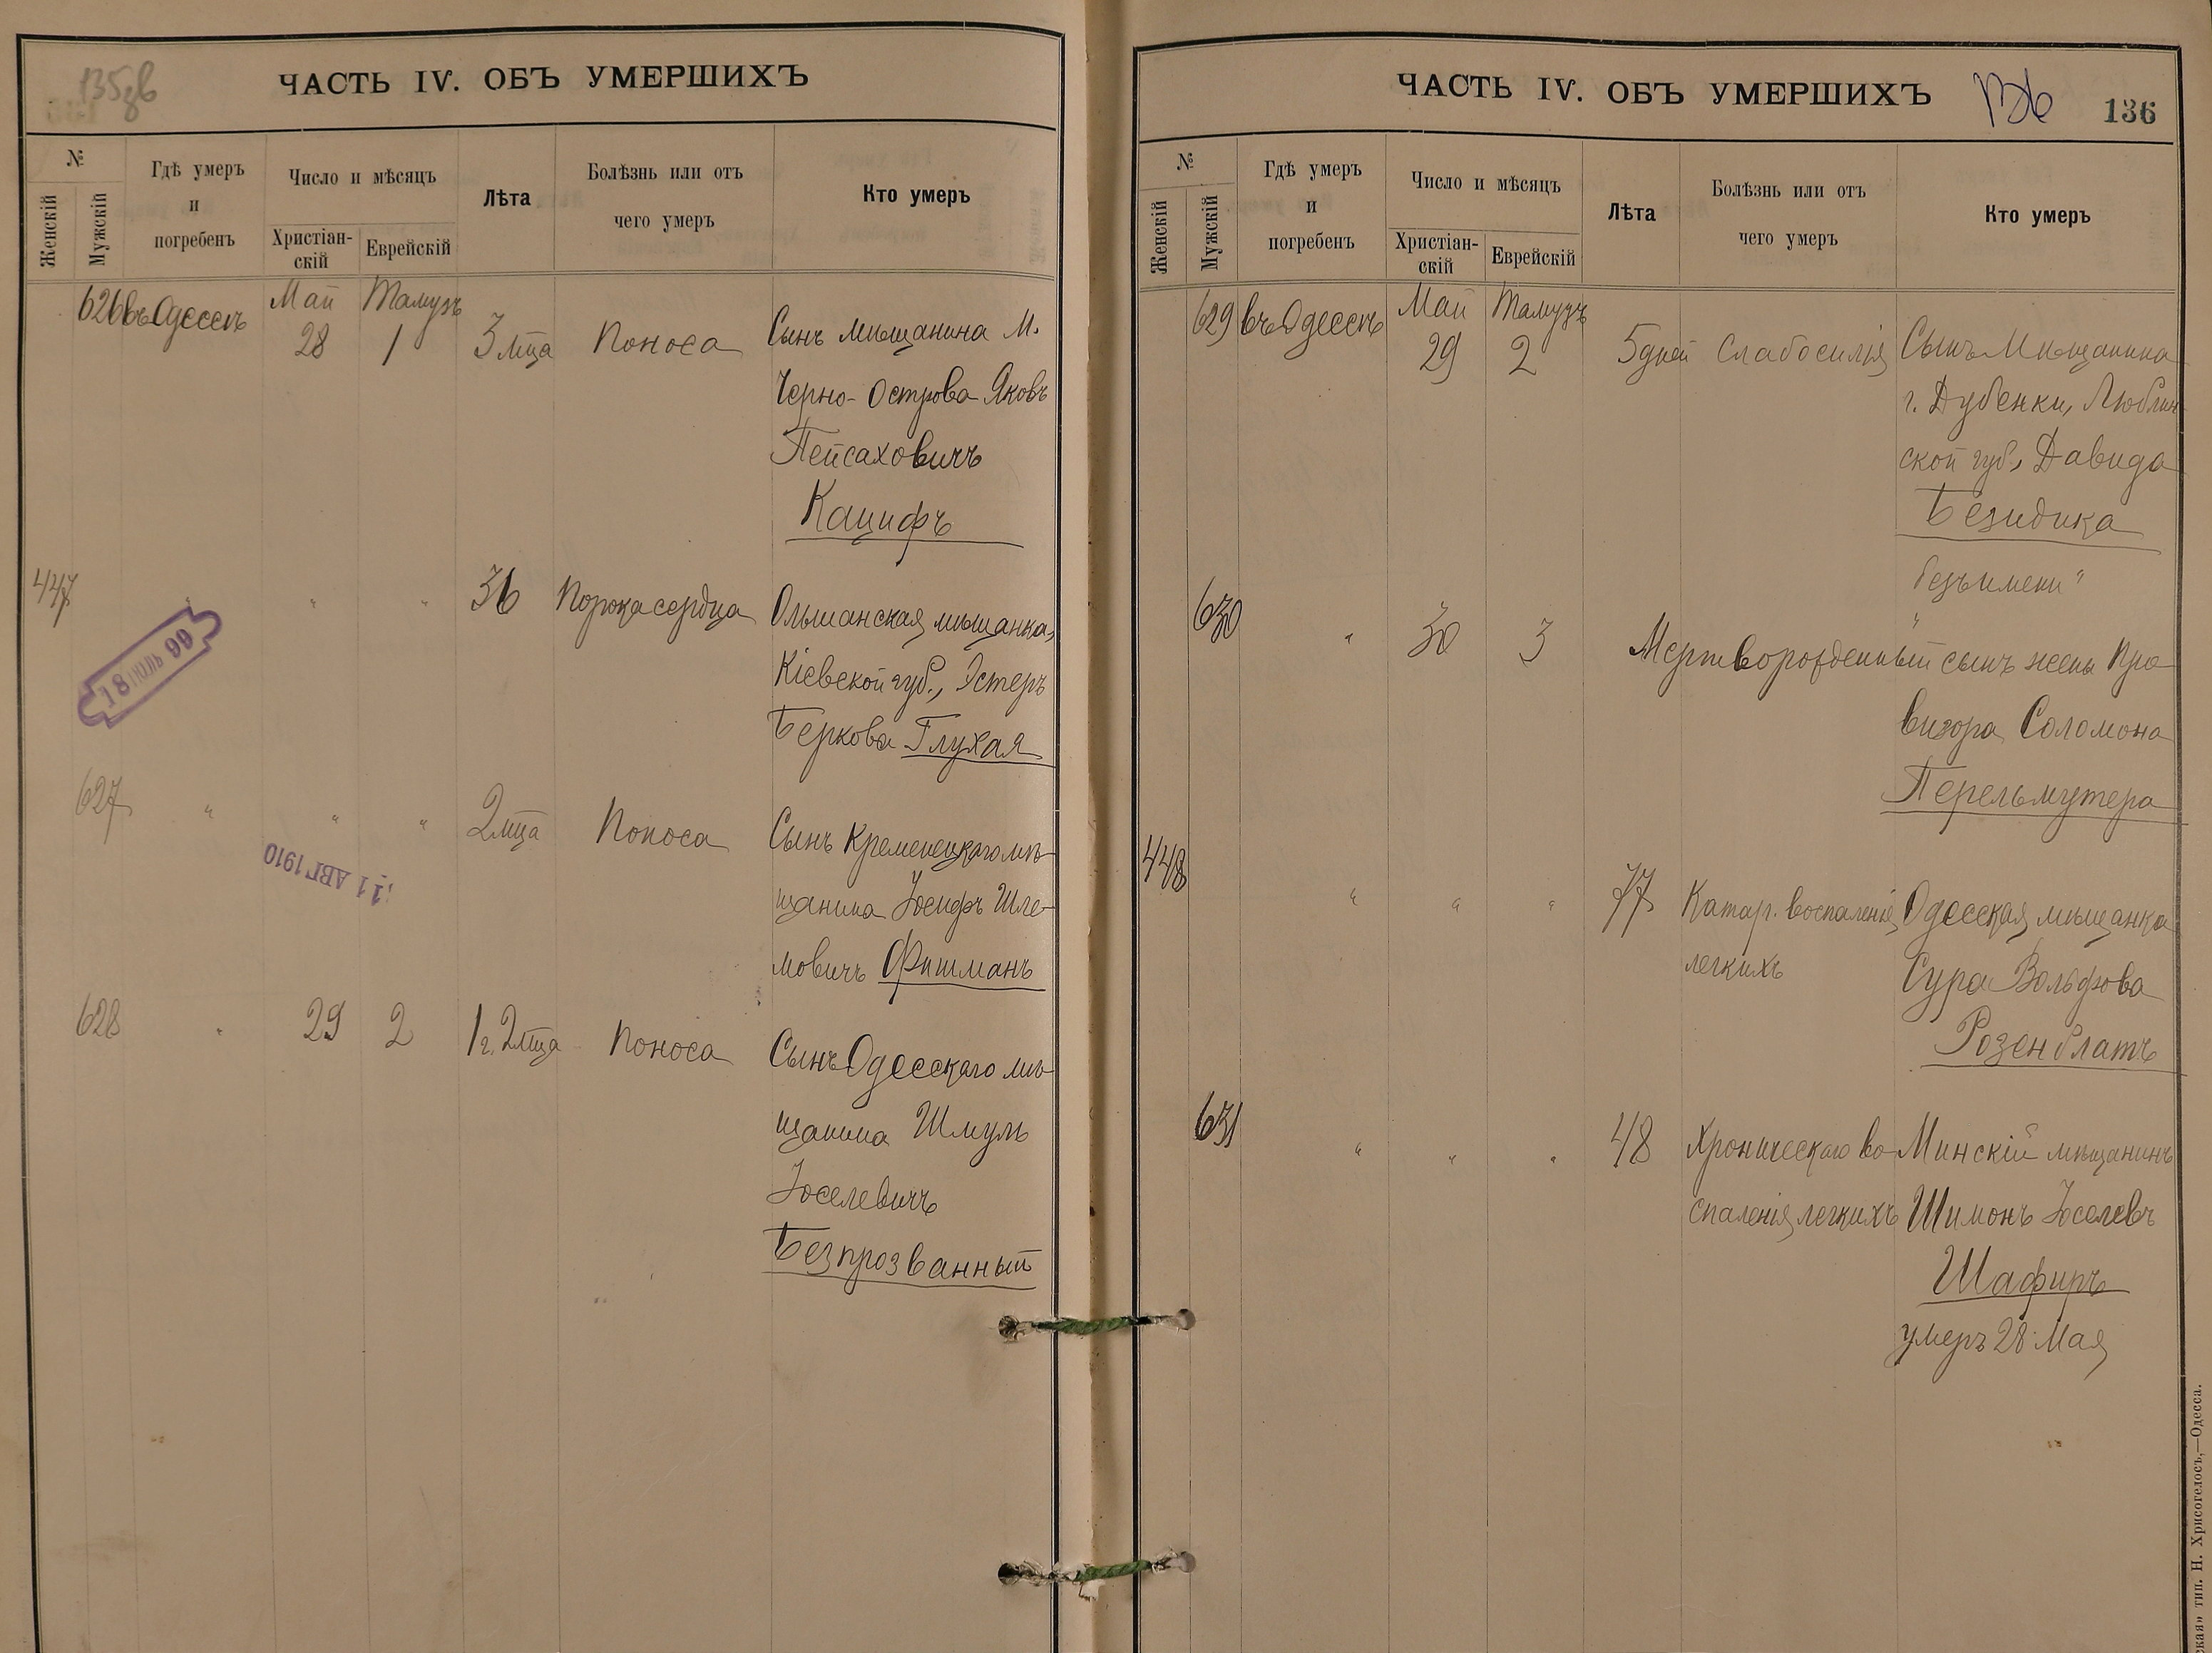 135об
ЧАСТЬ IV. ОБЪ УМЕРШИХЪ
№
Женскій
Мужскій
Гдѣ умеръ
и
погребенъ
Число и мѣсяцъ
Христіан-
скій
Еврейскій
Лѣта
Болѣзнь или отъ
чего умеръ
Кто умеръ
626 въ Одессѣ Май Тамузъ
28 1 3 мца Поноса Сынъ мѣщанина М.
Черно-Острова Яковъ
Пейсаховичъ
Кацифъ
447 " " " 36 Порока сердца Ольшанская мѣщанка,
Кіевской губ., Эстеръ
Беркова Глухая
18 99
627 " " " 2 мца Поноса Сынъ Кременецкаго мѣ-
щанина Іосифъ Шле-
мовичъ Фишманъ
11 АВГ 1910
628 " 29 2 1 г. 2 мца Поноса Сынъ Одесскаго мѣ-
щанина Шмуль
Іоселевичъ
Безпрозванный
ЧАСТЬ IV. ОБЪ УМЕРШИХЪ
136
136
№
Женскій
Мужскій
Гдѣ умеръ
и
погребенъ
Число и мѣсяцъ
Христіан-
скій
Еврейскій
Лѣта
Болѣзнь или отъ
чего умеръ
Кто умеръ
629 въ Одессѣ Май Тамузъ
29 2 5 дней Слабосилія Сынъ Мѣщанина
г. Дубенки, Люблин-
ской губ., Давида
Безидика
безъ имени "
630 " 30 3 Мертворожденный сынъ жены Про-
визора Соломона
Перельмутера
448 " " " 77 Катар. воспаленія Одесская мѣщанка
легкихъ Сура Вольфова
Розенблатъ
631 " " " 48 Хроническаго во- Минскій мѣщанинъ
спаленія легкихъ Шимонъ Іоселевъ
Шафиръ
умеръ 28 Мая
тип. Н. Хрисогелосъ,—Одесса.